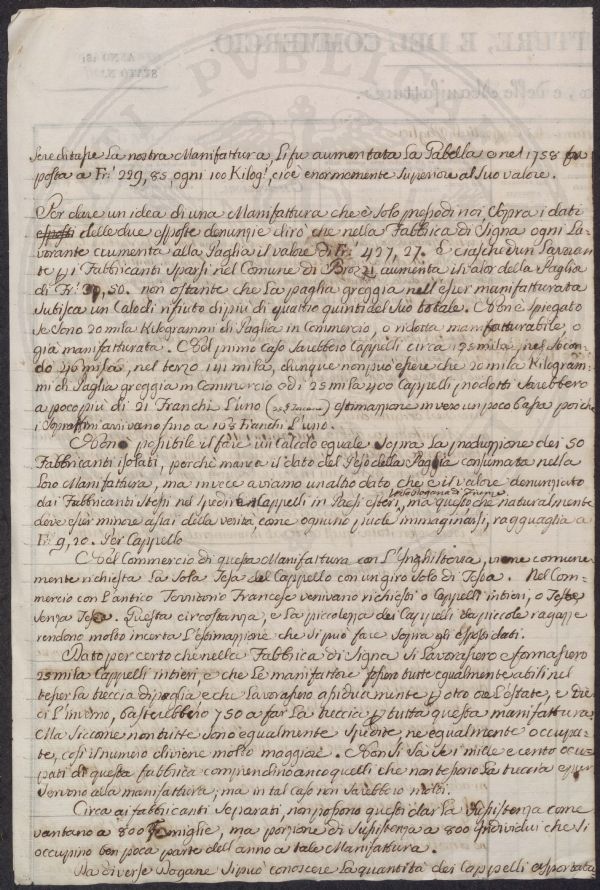 Screditasse La nostra Manifattura, Li fu aumentata La Tabella e nel 1758 fu
posta a Fr.i 229,85, ogni 100 Kilog.i, cioè enormemente Superiore al Suo valore.
Per dare un idea di una Manifattura che è Solo presso di noi, Sopra i dati
delle due opposte denunzie dirò che nella Fabbrica di Signa ogni La-
vorante aumenta alla Paglia il valore di Fr.i 427,27. E ciaschedun Lavoran-
te 41 Fabbricanti sparsi nel Comune di Brozzi aumenta il valor della Paglia
di Fr.i 99,50. non ostante che La paglia greggia nell'esser manifatturata
Subisca un Calo di rifiuto di più di quattro quinti del Suo totale. Non è Spiegato
Se Sono 20 mila Kilogrammi di Paglia in Commercio, o ridotta manifatturabile, o
già manifatturata. Nel primo Caso Sarebbero Cappelli circa 25 mila, nel Secon-
do 46 mila, nel terzo 141 mila, dunque non può essere che 20 mila Kilogram-
mi di Paglia greggia in Commercio ed i 25 mila 400 Cappelli prodotti Sarebbero
a poco più di 21 Franchi L'uno estimazione in vero un poco bassa poiche
i Sopraffini arrivano fino a 103 Franchi L'uno.
Non è possibile il fare un Calcolo eguale Sopra La produzione dei 50
Fabbricanti isolati, perchè manca il dato del Peso della Paglia consumata nella
Loro Manifattura, ma invece aviamo un altro dato che è il valore denunziato
dai Fabbricanti Stessi nel Spedire i Cappelli in Paesi esteri, ma questo che naturalmente
deve esser minore assai della verità come ognuno puole immaginarsi, ragguaglia a
Fr.i 9,20. Per Cappello
Nel Commercio di questa Manifattura con L'Inghilterra, viene comune-
mente richiesta La Sola Tesa del Cappello con un giro Solo di Testa. Nel Com-
mercio con L'antico Territorio Francese venivano richiesti o Cappelli intieri, o Teste
Senza Tesa. Questa circostanza, e La piccolezza dei Cappelli da piccole ragazze
rendono molto incerta L'estimazione che Si può fare Sopra gli esposti dati.
Dato per certo che nella Fabbrica di Signa Si Lavorassero e formassero
25 mila Cappelli intieri, e che Le manifattore fossero tutte egualmente abili nel
tesser La treccia di paglia e che Lavorassero assiduamente ore L'estate, e die-
ci L'inverno, basterebbero 750 a far La treccia tutta questa manifattura.
Ma Siccome non tutte Sono egualmente Spedite, ne egualmente occupa-
te, così il numero diviene molto maggiore. Non Si Sa Se i mille e cento occu-
pati di questa fabbrica comprendino anco quelli che non tessono La treccia e pur
Servono alla manifattura; ma in tal caso non Sarebbero molti.
Circa ai fabbricanti Separati, non possono questi dar La Sussistenza come
vantano a 800 Famiglie, ma porzione di Sussistenza a 800 individui che Si
occupino ben poca parte dell'anno a tale Manifattura.
Da diverse Dogane Si può conoscere La quantità dei Cappelli esportata